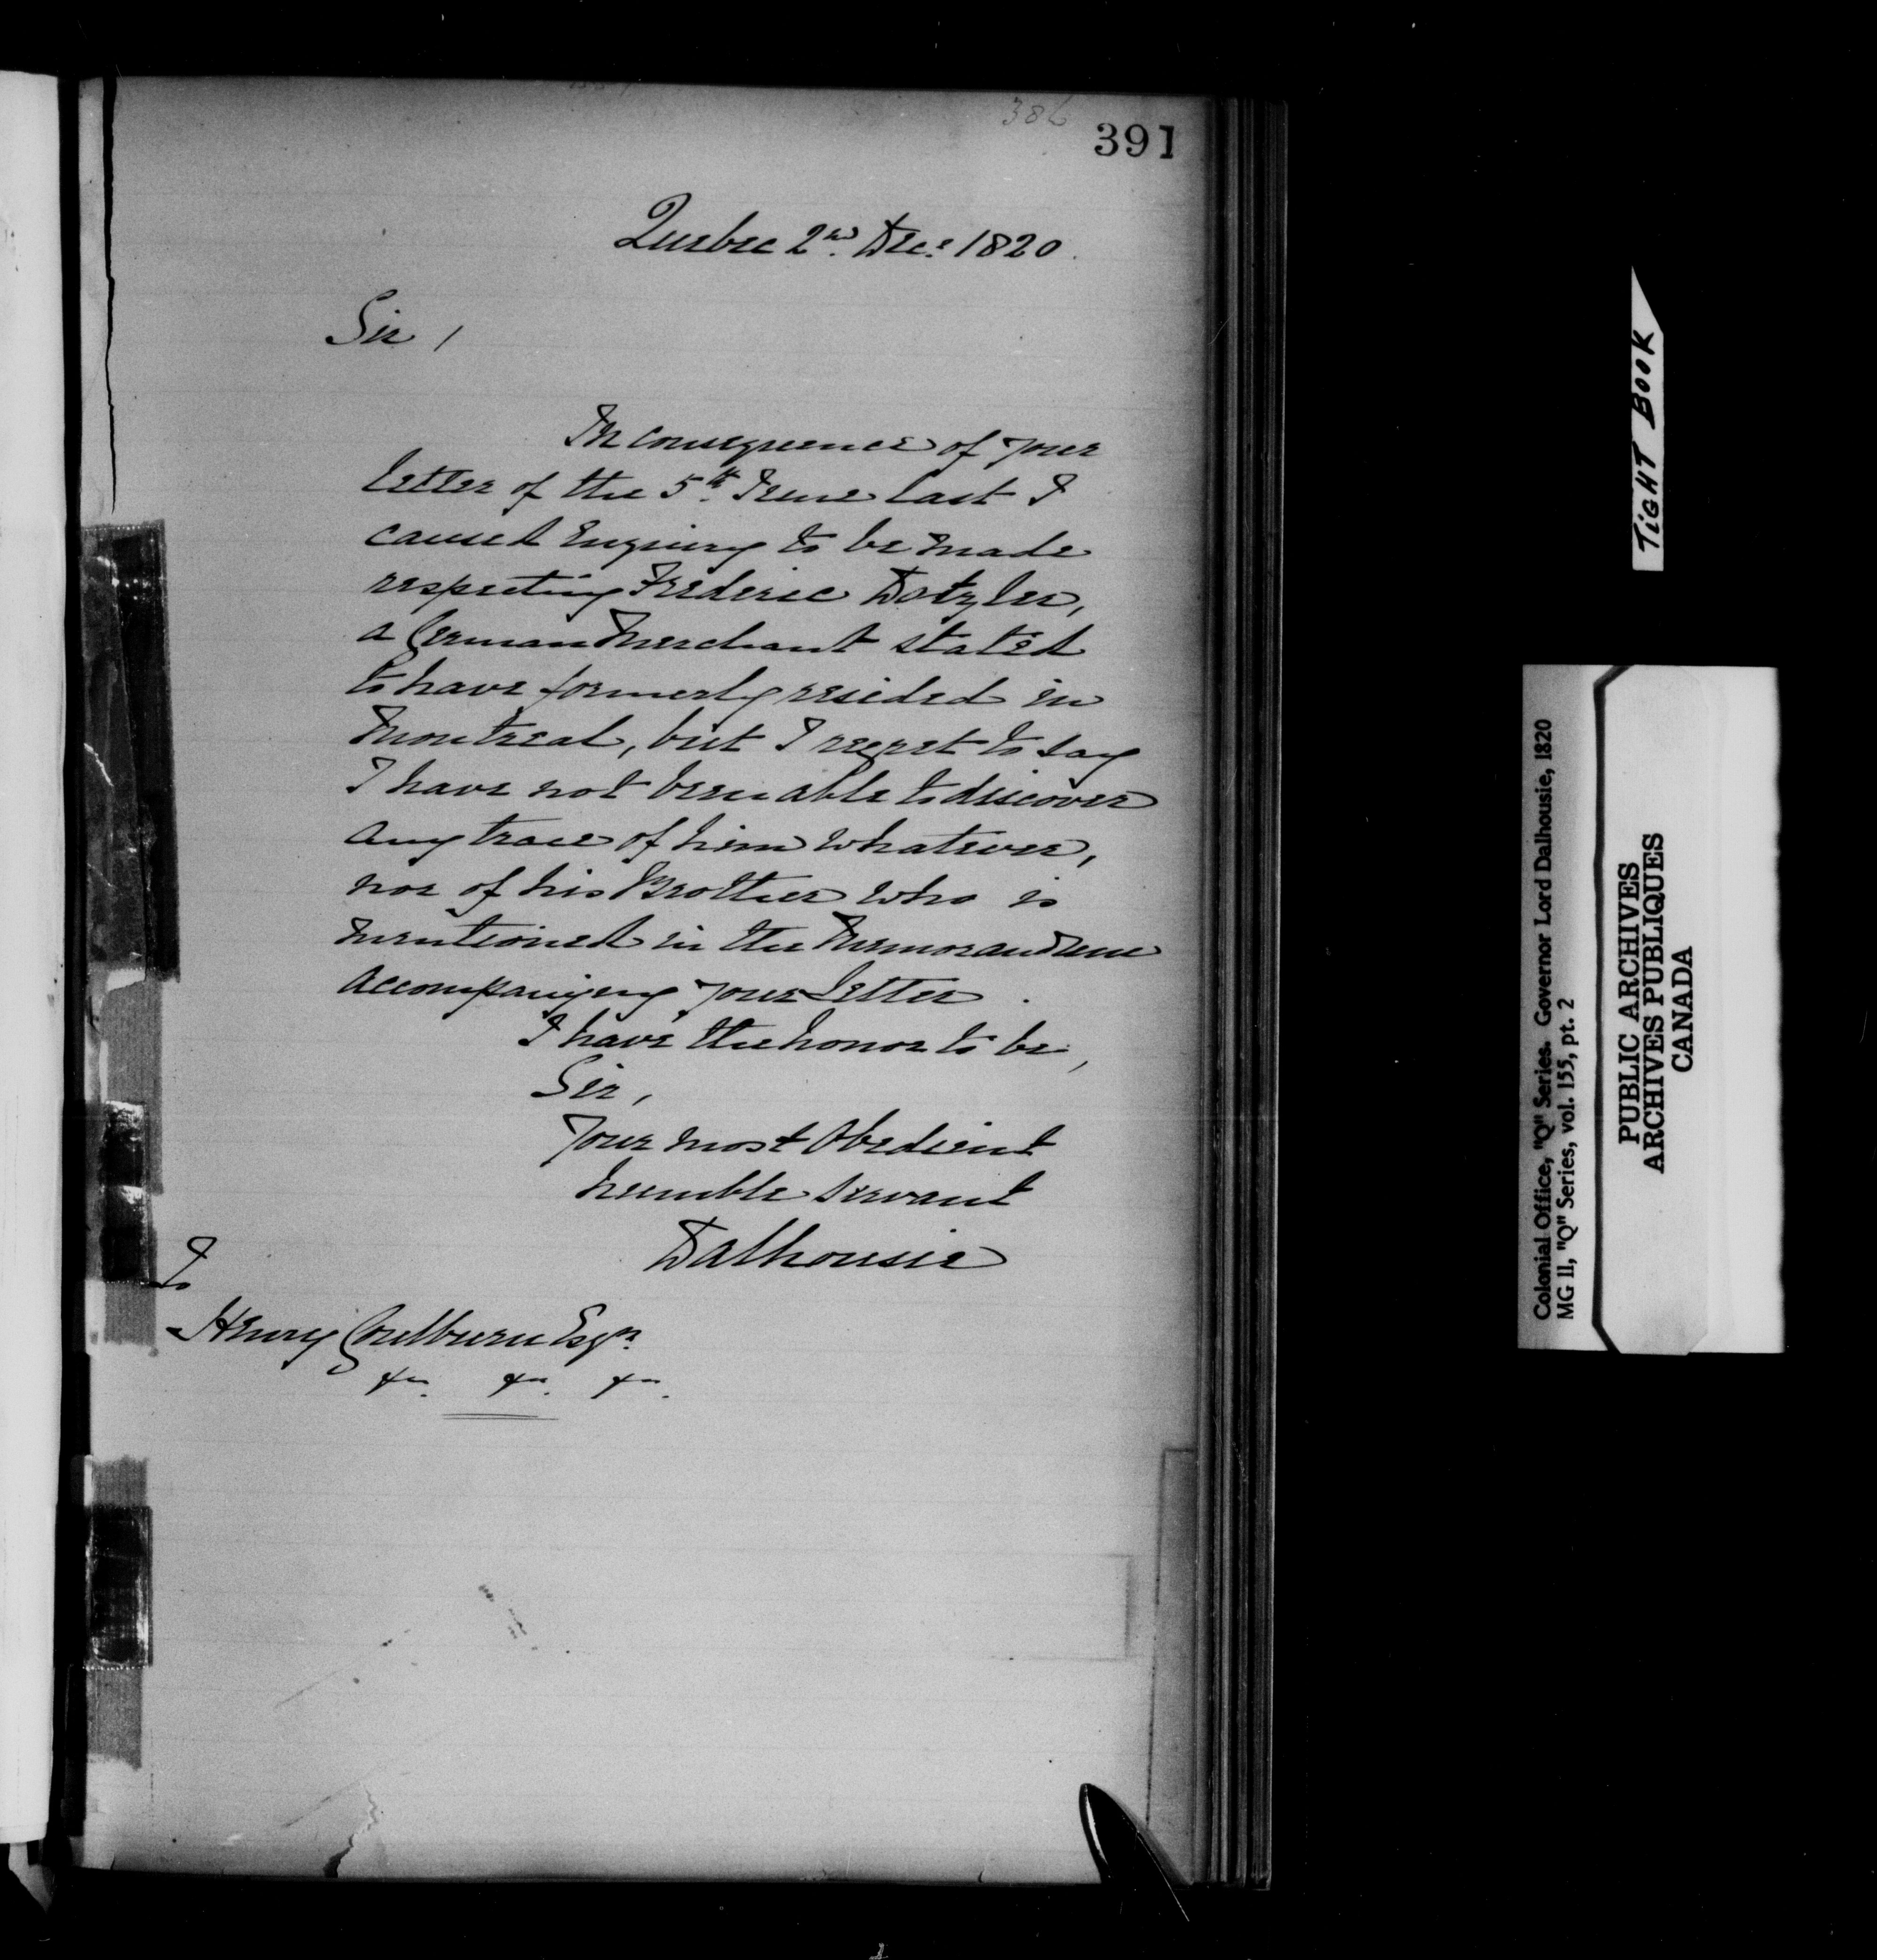 391
Quebec 2nd. Decr 1820.
Sir,
In consequence of your
letter of the 5th. June last I
caused Enquiry to be made
respecting Frederic Dotzler,
a German Merchant stated
to have formerly resided in
Montreal, but I regret to say
I have not been able to discover
any trace of him whatever,
nor of his Brother who is
mentioned in the Memorandum
accompanying your Letter.
I have the honor to be,
Sir,
Your most Obedient
humble Servant
Dalhousie
To
Henry Goulburn Esqr.
&c. &c. &c.
TiGHT BOOK
Colonial Office, "Q" Series. Governor Lord Dalhousie, 1820
MG 11, "Q" Series, vol. 155, pt. 2
PUBLIC ARCHIVES
ARCHIVES PUBLIQUES
CANADA